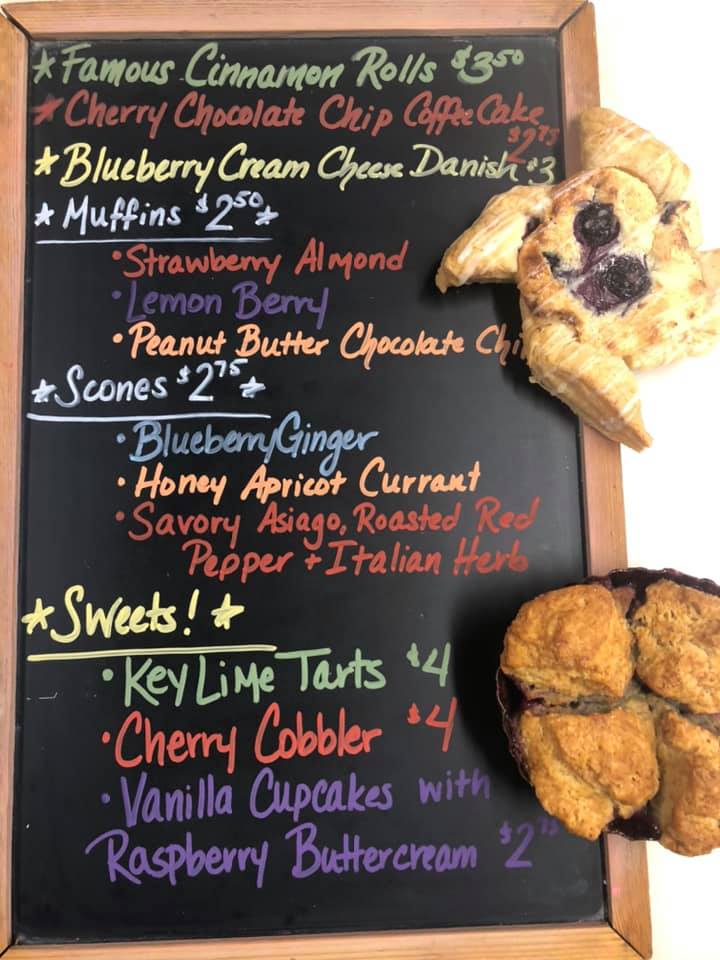 ★Famous Cinnamon Rolls $3.50
★Cherry Chocolate Chip Coffee Cake
$2.75
★Blueberry Cream Cheese Danish $3
★Muffins $2.50★
•Strawberry Almond
•Lemon Berry
•Peanut Butter Chocolate Chi
★Scones $2.75★
•Blueberry/Ginger
•Honey Apricot Currant
•Savory Asiago, Roasted Red
Pepper + Italian Herb
★Sweets!★
•Key Lime Tarts $4
•Cherry Cobbler $4
•Vanilla Cupcakes with
Raspberry Buttercream $2.75